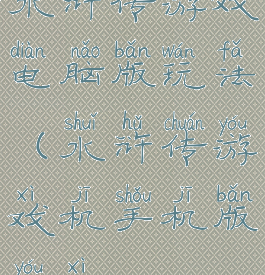 水浒传游戏
diàn nǎo bǎn wán fǎ
电脑版玩法
shuǐ hǔ chuán yóu
(水浒传游
xì jī shǒu jī bǎn
戏机手机版
yóu xì